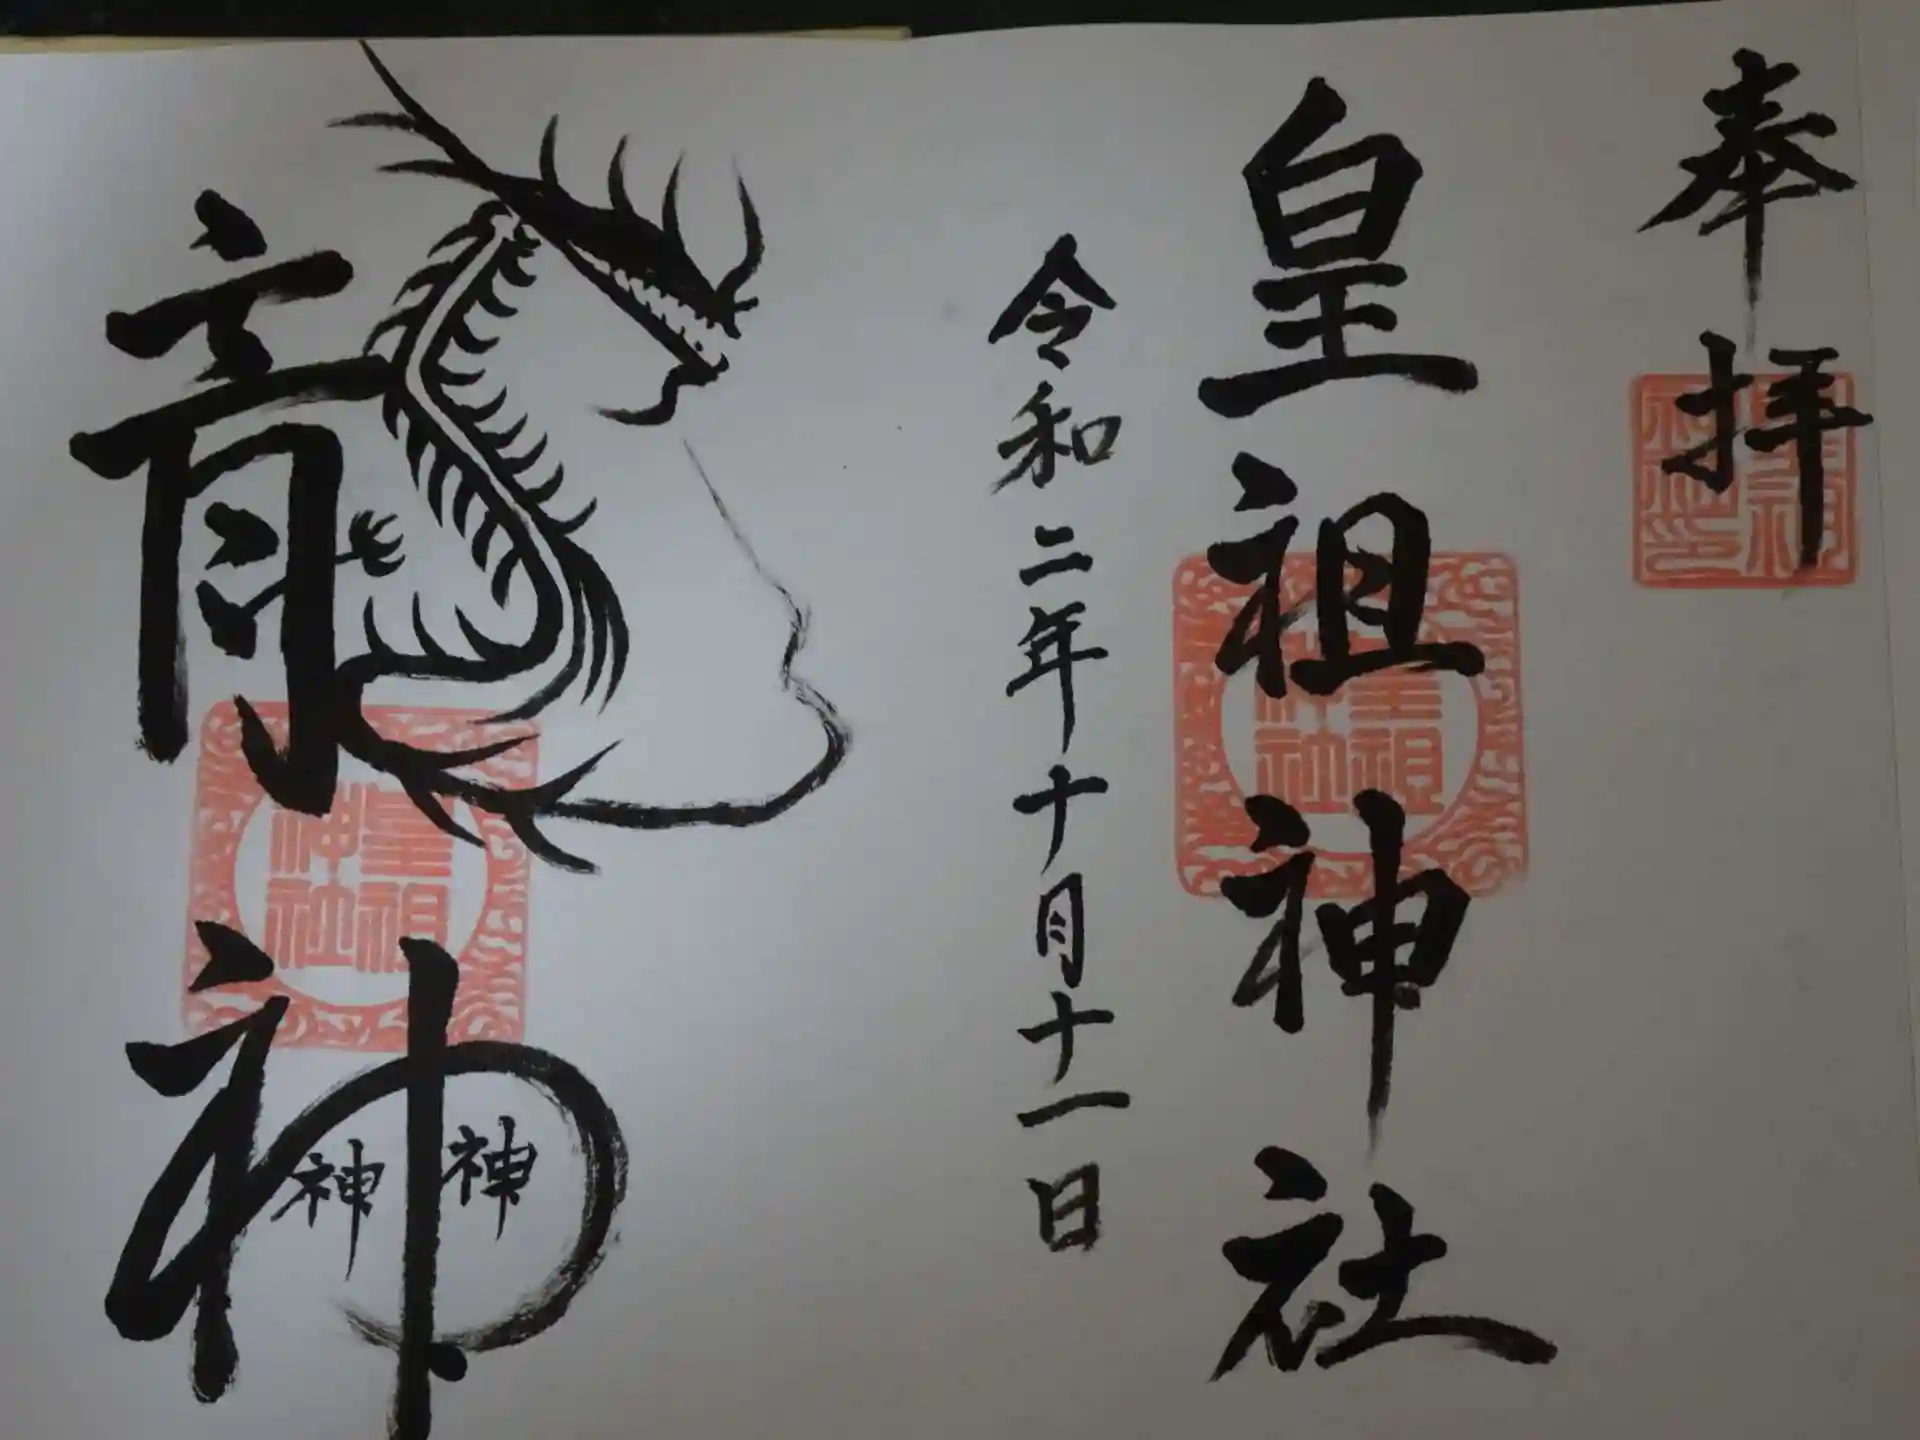 奉拝
皇祖神社
令和二年十月十一日
龍神
神 神
皇祖
神社
皇祖
神社